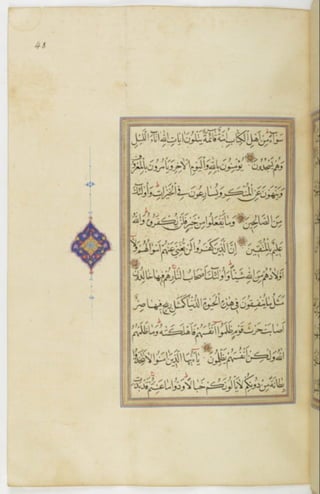 48
سواء من اهل الكتاب امة قائمة يتلون ايات الله اناء الليل
وهم يسجدون يؤمنون بالله واليوم الاخر ويأمرون بالمعروف
وينهون عن المنكر ويسارعون في الخيرات واولئك
من الصالحين وما يفعلوا من خير فلن يكفروه والله
عليم بالمتقين ان الذين كفروا لن تغني عنهم اموالهم ولا
اولادهم من الله شيئا واولئك اصحاب النار هم فيها خالدون
مثل ما ينفقون في هذه الحيوة الدنيا كمثل ريح فيها صر
اصابت حرث قوم ظلموا انفسهم فاهلكته وما ظلمهم
الله ولكن انفسهم يظلمون يا ايها الذين امنوا لا تتخذوا
بطانة من دونكم لا يألونكم خبالا ودوا ما عنتم قد بدت